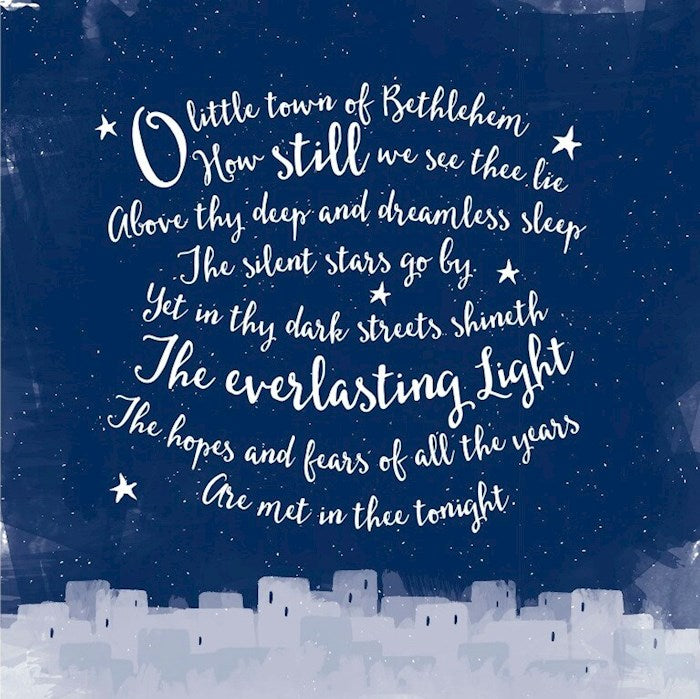 O little town of Bethlehem
How still we see thee lie
Above thy deep and dreamless sleep
The silent stars go by
Yet in thy dark streets shineth
The everlasting Light
The hopes and fears of all the years
Are met in thee tonight